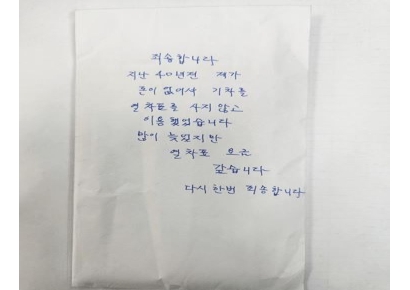 죄송합니다
지난 40년전 제가
돈이 없어서 기차를
열차표를 사지 않고
이용했었습니다
많이 늦었지만
열차표 요금
갚습니다
다시 한번 죄송합니다